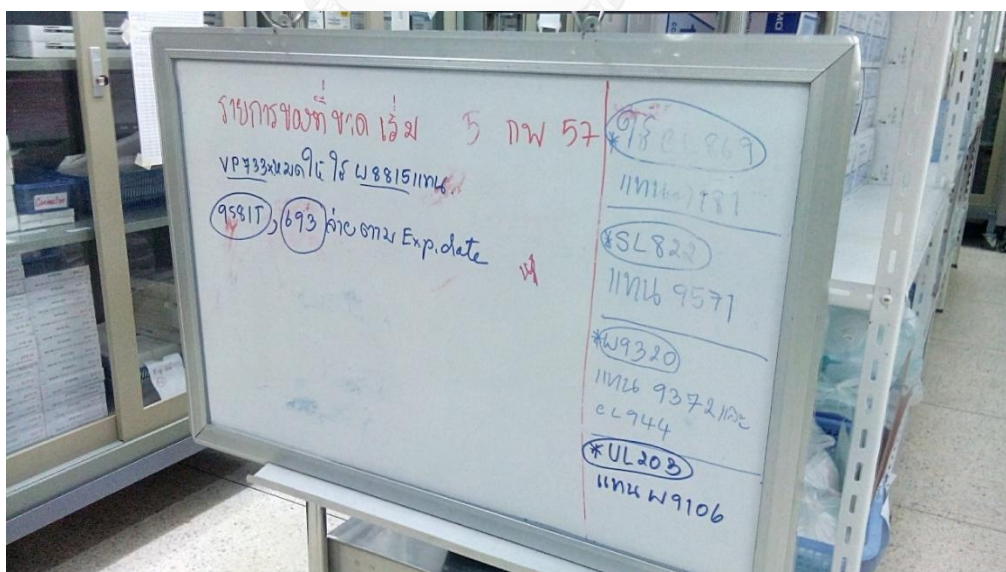 รายการของที่ขาด เริ่ม 5 กพ 57
VP733xหมดให้ใช้ W8815แทน
9581T, 693 จ่ายตาม Exp.date
*ใช้ CL869
แทน
*SL822
แทน 9571
*W9320
แทน 9372และ
CL944
*UL203
แทน W9106
Connector